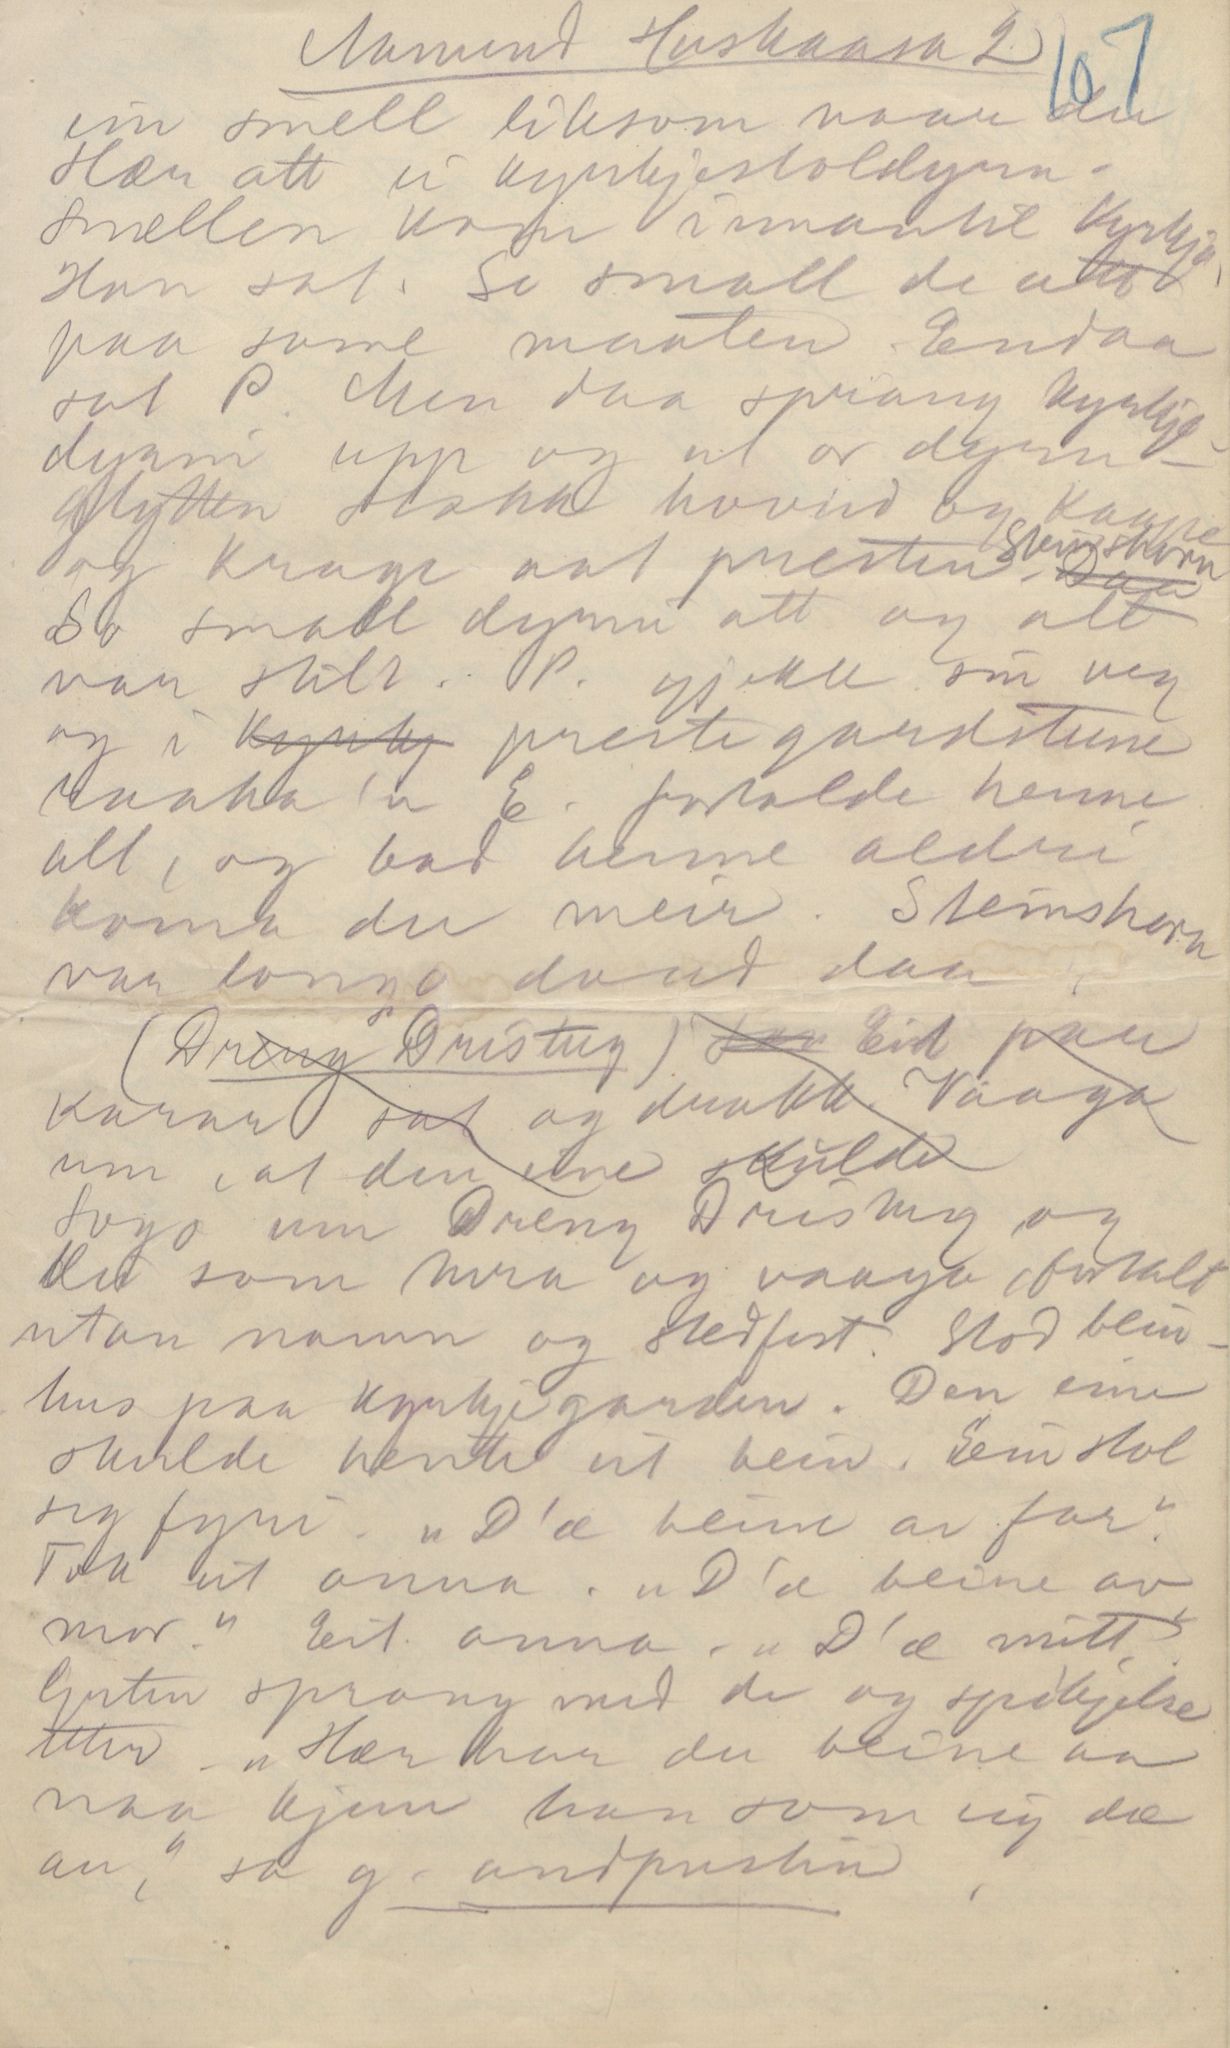 Aamund Huskaasa 2. 167
ein smell liksom naar du
slær att ei kyrkjestoldyrm.
Smellen kom innantil kyrkja,
Han sat. So small de atto
paa same maaten. Endaa
sat P. Men daa sprang kyrkje-
dynni upp og ut or dyrm-
glytten stakk hovud og kaape
og krage aat presten Steinshorn
So small dynni att og alt
var stilt. P. gjekk sin veg
og i kyrkj prestegardstune
raaka 'n E. fortalde henne
alt, og bad henne aldri
koma der meir. Steinshorn
var longo daud daa
(Dreng Dristug) Eit paa
karar sat og drakk. Vaaga
um, at den eine skulde
Sogo um Dreng Dristug og
dei som hera og vaaga, fortalt
utan namn og stedfest. Stod bein-
hus paa kyrkjegarden. Den eine
skulde hente eit bein. Ein stol
seg fyri. "D'æ beine av far".
Tok eit anna. "D'æ beine av
mor." Eit anna. "D'æ mitt."
Guten sprang med de og spikjelse
etter. "Hær har du beine aa
naa kjem han som eig dæ
au," sa g. andpusten,